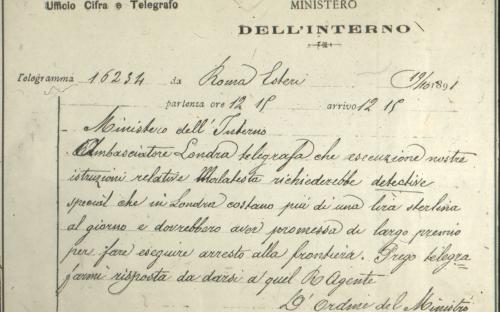 Ufficio Cifra e Telegrafo
MINISTERO
DELL'INTERNO
Telegramma 16234 da Roma Esteri 19/10 1891
partenza ore 12 15 arrivo 12 15
Ministero dell'Interno
Ambasciatore Londra telegrafa che esecuzione nostre
istruzioni relative Malatesta richiederebbe detective
special che in Londra costano più di una lira sterlina
al giorno e dovrebbero aver promessa di largo premio
per fare eseguire arresto alla frontiera. Prego telegra
farmi risposta da darsi a quel R Agente
D'Ordine del Ministro